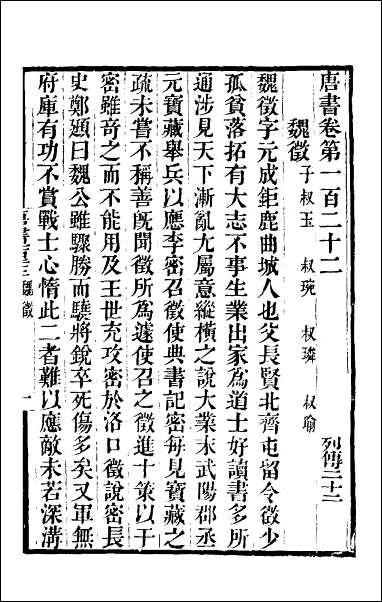 唐書卷第一百二十二　列傳二十二
魏徵 子叔玉 叔琬 叔璘 叔瑜
魏徵字元成鉅鹿曲城人也父長賢北齊屯留令徵少
孤貧落拓有大志不事生業出家為道士好讀書多所
通涉見天下漸亂尤屬意縱橫之說大業末武陽郡丞
元寶藏舉兵以應李密召徵使典書記密每見寶藏之
疏未嘗不稱善既聞徵所為遽使召之徵進十策以干
密雖奇之而不能用及王世充攻密於洛口徵說密長
史鄭頲曰魏公雖驟勝而驍將銳卒死傷多矣又軍無
府庫有功不賞戰士心惰此二者難以應敵未若深溝